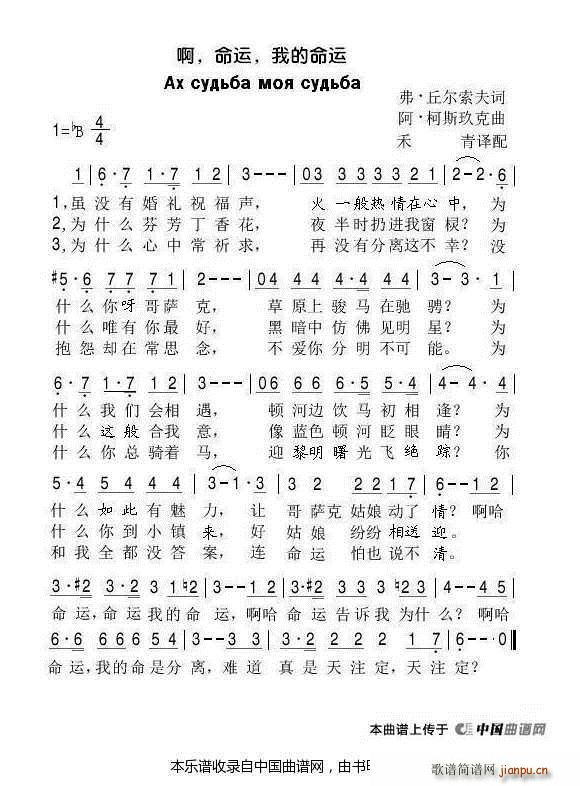 啊，命运，我的命运
Ах судьба моя судьба
弗·丘尔索夫词
1=♭B 4/4
阿·柯斯玖克曲
禾 青译配
1 | 6·7 1·7 1 2 | 3 - - - | 0 3 3 3 3 3 2 1 | 2 - 2· 6 |
1,虽没有婚礼祝福声， 火一般热情在心中，为
2,为什么芬芳丁香花， 夜半时扔进我窗棂？为
3,为什么心中常祈求， 再没有分离这不幸？没
#5·6 7 7 7 1 | 2 - - - | 0 4 4 4 4 4 3 2 | 3 - 3· 1 |
什么你呀哥萨克， 草原上骏马在驰骋？为
什么唯有你最好， 黑暗中仿佛见明星？为
抱怨却在常思念， 不爱你分明不可能。为
6·7 1·7 1 2 | 3 - - - | 0 6 6 6·5 4 3 | 4 - 4· 4 |
什么我们会相遇， 顿河边饮马初相逢？为
什么这般合我意， 像蓝色顿河眨眼睛？为
什么你总骑着马， 迎黎明曙光飞绝踪？你
5·4 5 4 5 4 | 3 - 1·3 | 3 2 2 2 1 7 | 6 - - 1 2 |
什么如此有魅力，让哥萨克姑娘动了情？啊哈
什么你到小镇来，好姑娘纷纷相送迎。
和我全都没答案，连命运怕也说不清。
3·#2 3·2 3 1 ♮2 | 3 - - #2 | 3·#2 3 4 3 ♮2 | 4 - - 4 5 |
命运，命运我的命运，啊哈命运告诉我为什么？啊哈
6·6 5 6 5 4 | 4 - - 3 4 | 3 2 2 2 1 7 | 6 - - · ‖
命运，我的命是分离，难道真是天注定，天注定？
本曲谱上传于 中国曲谱网
本乐谱收录自中国曲谱网，由书
歌谱简谱网
jianpu.cn